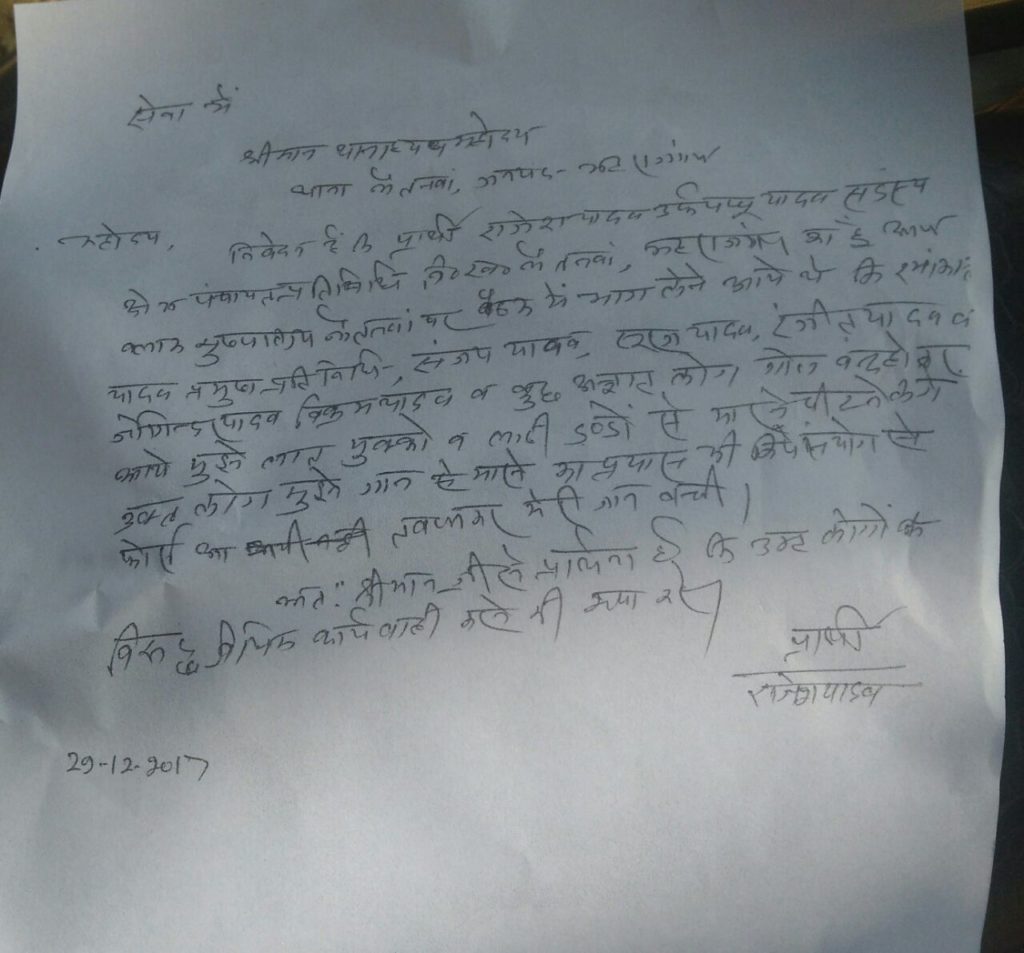 सेवा में
श्रीमान थानाध्यक्ष महोदय
थाना नौतनवां, जनपद- महराजगंज
महोदय,
निवेदन है कि प्रार्थी राजेश यादव उर्फ पप्पू यादव सदस्य
क्षेत्र पंचायत प्रतिनिधि नौतनवां, महराजगंज का है आज
ब्लाक मुख्यालय नौतनवां पर बैठक में भाग लेने आये थे कि
यादव प्रमुख प्रतिनिधि, संजय यादव, यादव, रंजीत यादव व
जोगिन्दर यादव विक्रम यादव व कुछ अज्ञात लोग गोल बन्द होकर
आये मुझे लात मुक्को व लाठी डण्डों से मारने पीटने लगे
उक्त लोग मुझे जान से मारने का प्रयास भी किये संयोग से
फोर्स आ गयी तब जाकर मेरी जान बच्ची।
अतः श्रीमान जी से प्रार्थना है कि उक्त लोगों के
विरूद्ध विधिक कार्यवाही करने की कृपा करे।
प्रार्थी
राजेश यादव
29-12-2017